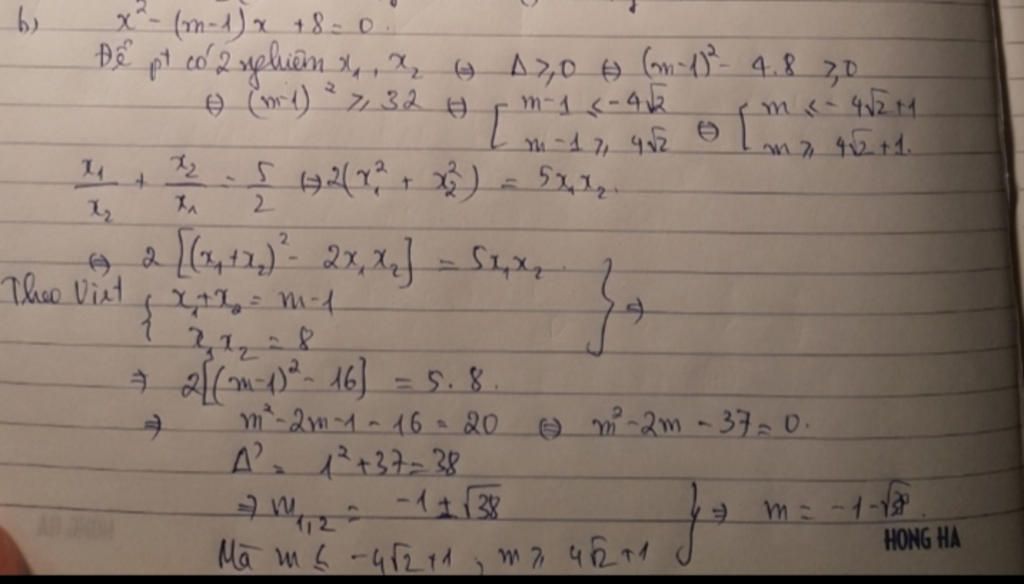 b) x² - (m-1)x + 8 = 0.
Để pt có 2 nghiệm x₁, x₂ ⇔ Δ ≥ 0 ⇔ (m-1)² - 4.8 ≥ 0
⇔ (m-1)² ≥ 32 ⇔ [ m-1 ≤ -4√2 ⇔ [ m ≤ -4√2+1
m-1 ≥ 4√2 m ≥ 4√2+1.
x₁/x₂ + x₂/x₁ = 5/2 ⇔ 2(x₁² + x₂²) = 5x₁x₂.
⇔ 2[(x₁+x₂)² - 2x₁x₂] = 5x₁x₂.
Theo Viet { x₁+x₂ = m-1 } ⇒
x₁x₂ = 8
⇒ 2[(m-1)² - 16] = 5.8.
⇒ m²-2m-1-16 = 20 ⇔ m²-2m-37=0.
Δ' = 1²+37=38
⇒ m₁,₂ = -1±√38 } ⇒ m = -1-√38.
Mà m ≤ -4√2+1, m ≥ 4√2+1
HONG HA